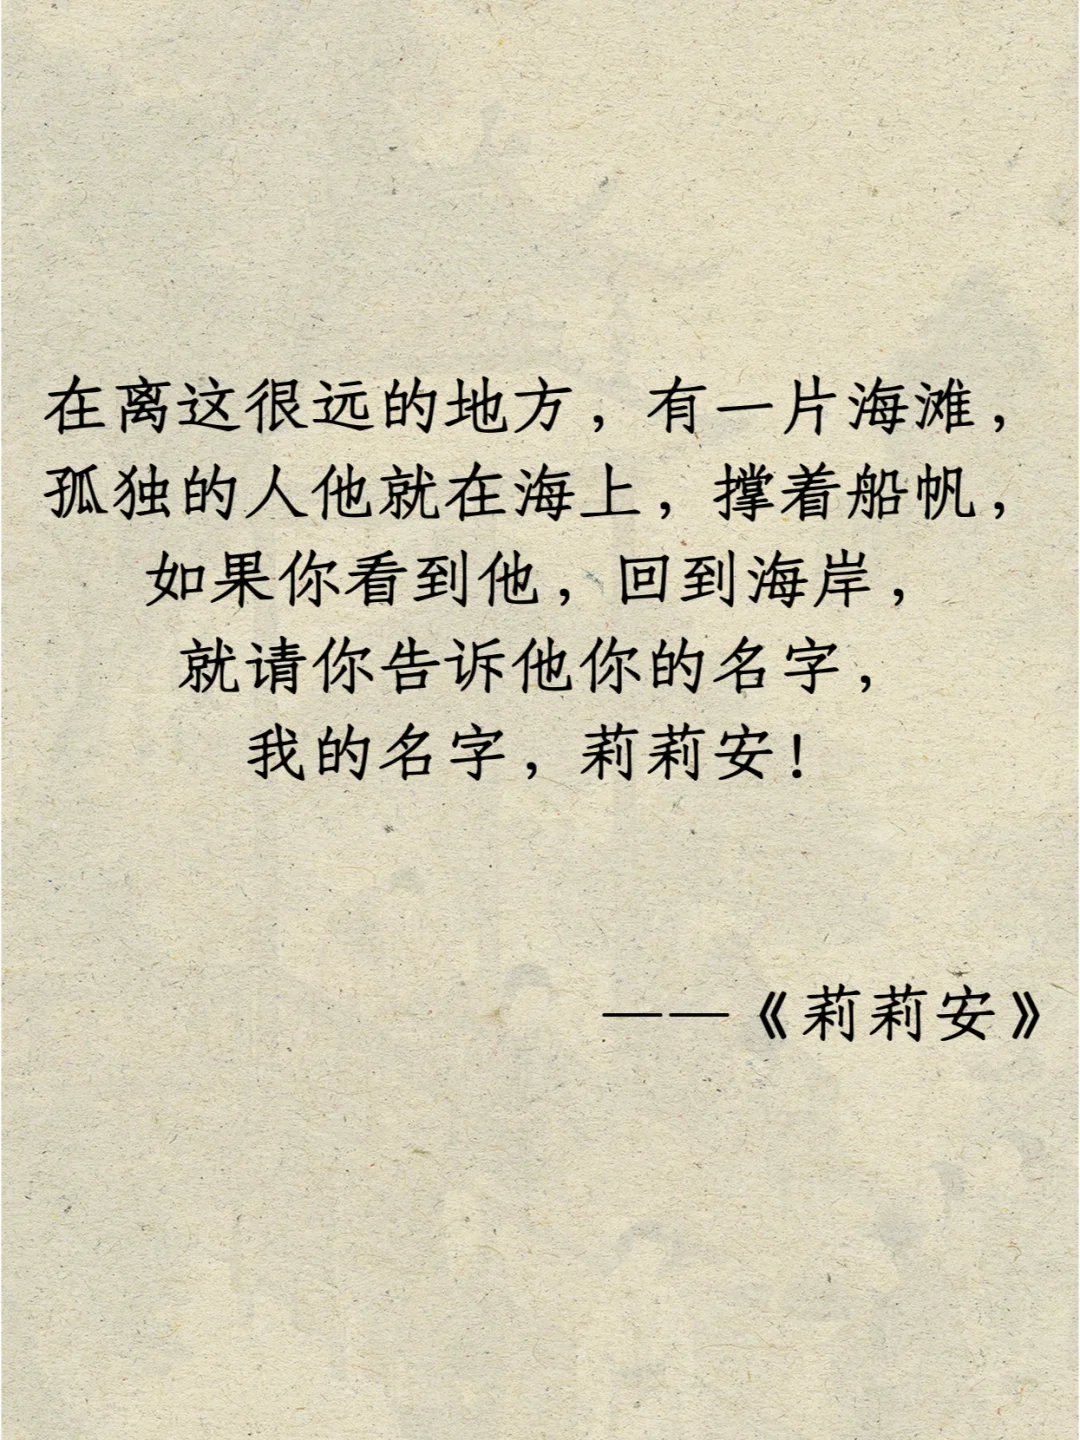 在离这很远的地方，有一片海滩，
孤独的人他就在海上，撑着船帆，
如果你看到他，回到海岸，
就请你告诉他你的名字，
我的名字，莉莉安！
——《莉莉安》